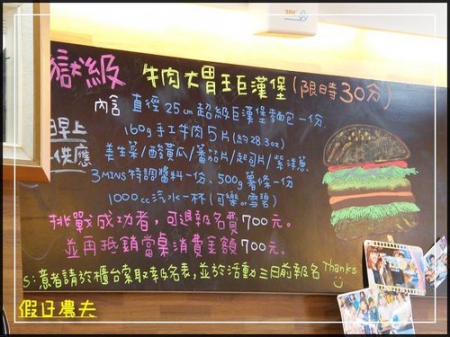 獄級 牛肉大胃王巨漢堡(限時30分)
內含 直徑25cm超級巨漢堡麵包一份
早上
供應
160g手工牛肉5片(約28.3oz)
美生菜/酸黃瓜/蕃茄片/起司片/紫洋蔥
3MINS特調醬料一份、500g薯條一份
1000cc汽水一杯(可樂or雪碧)
挑戰成功者,可退報名費700元。
並再抵銷當桌消費金額700元。
S:意者請於櫃台索取報名表,並於活動三日前報名 Thanks
假日農夫